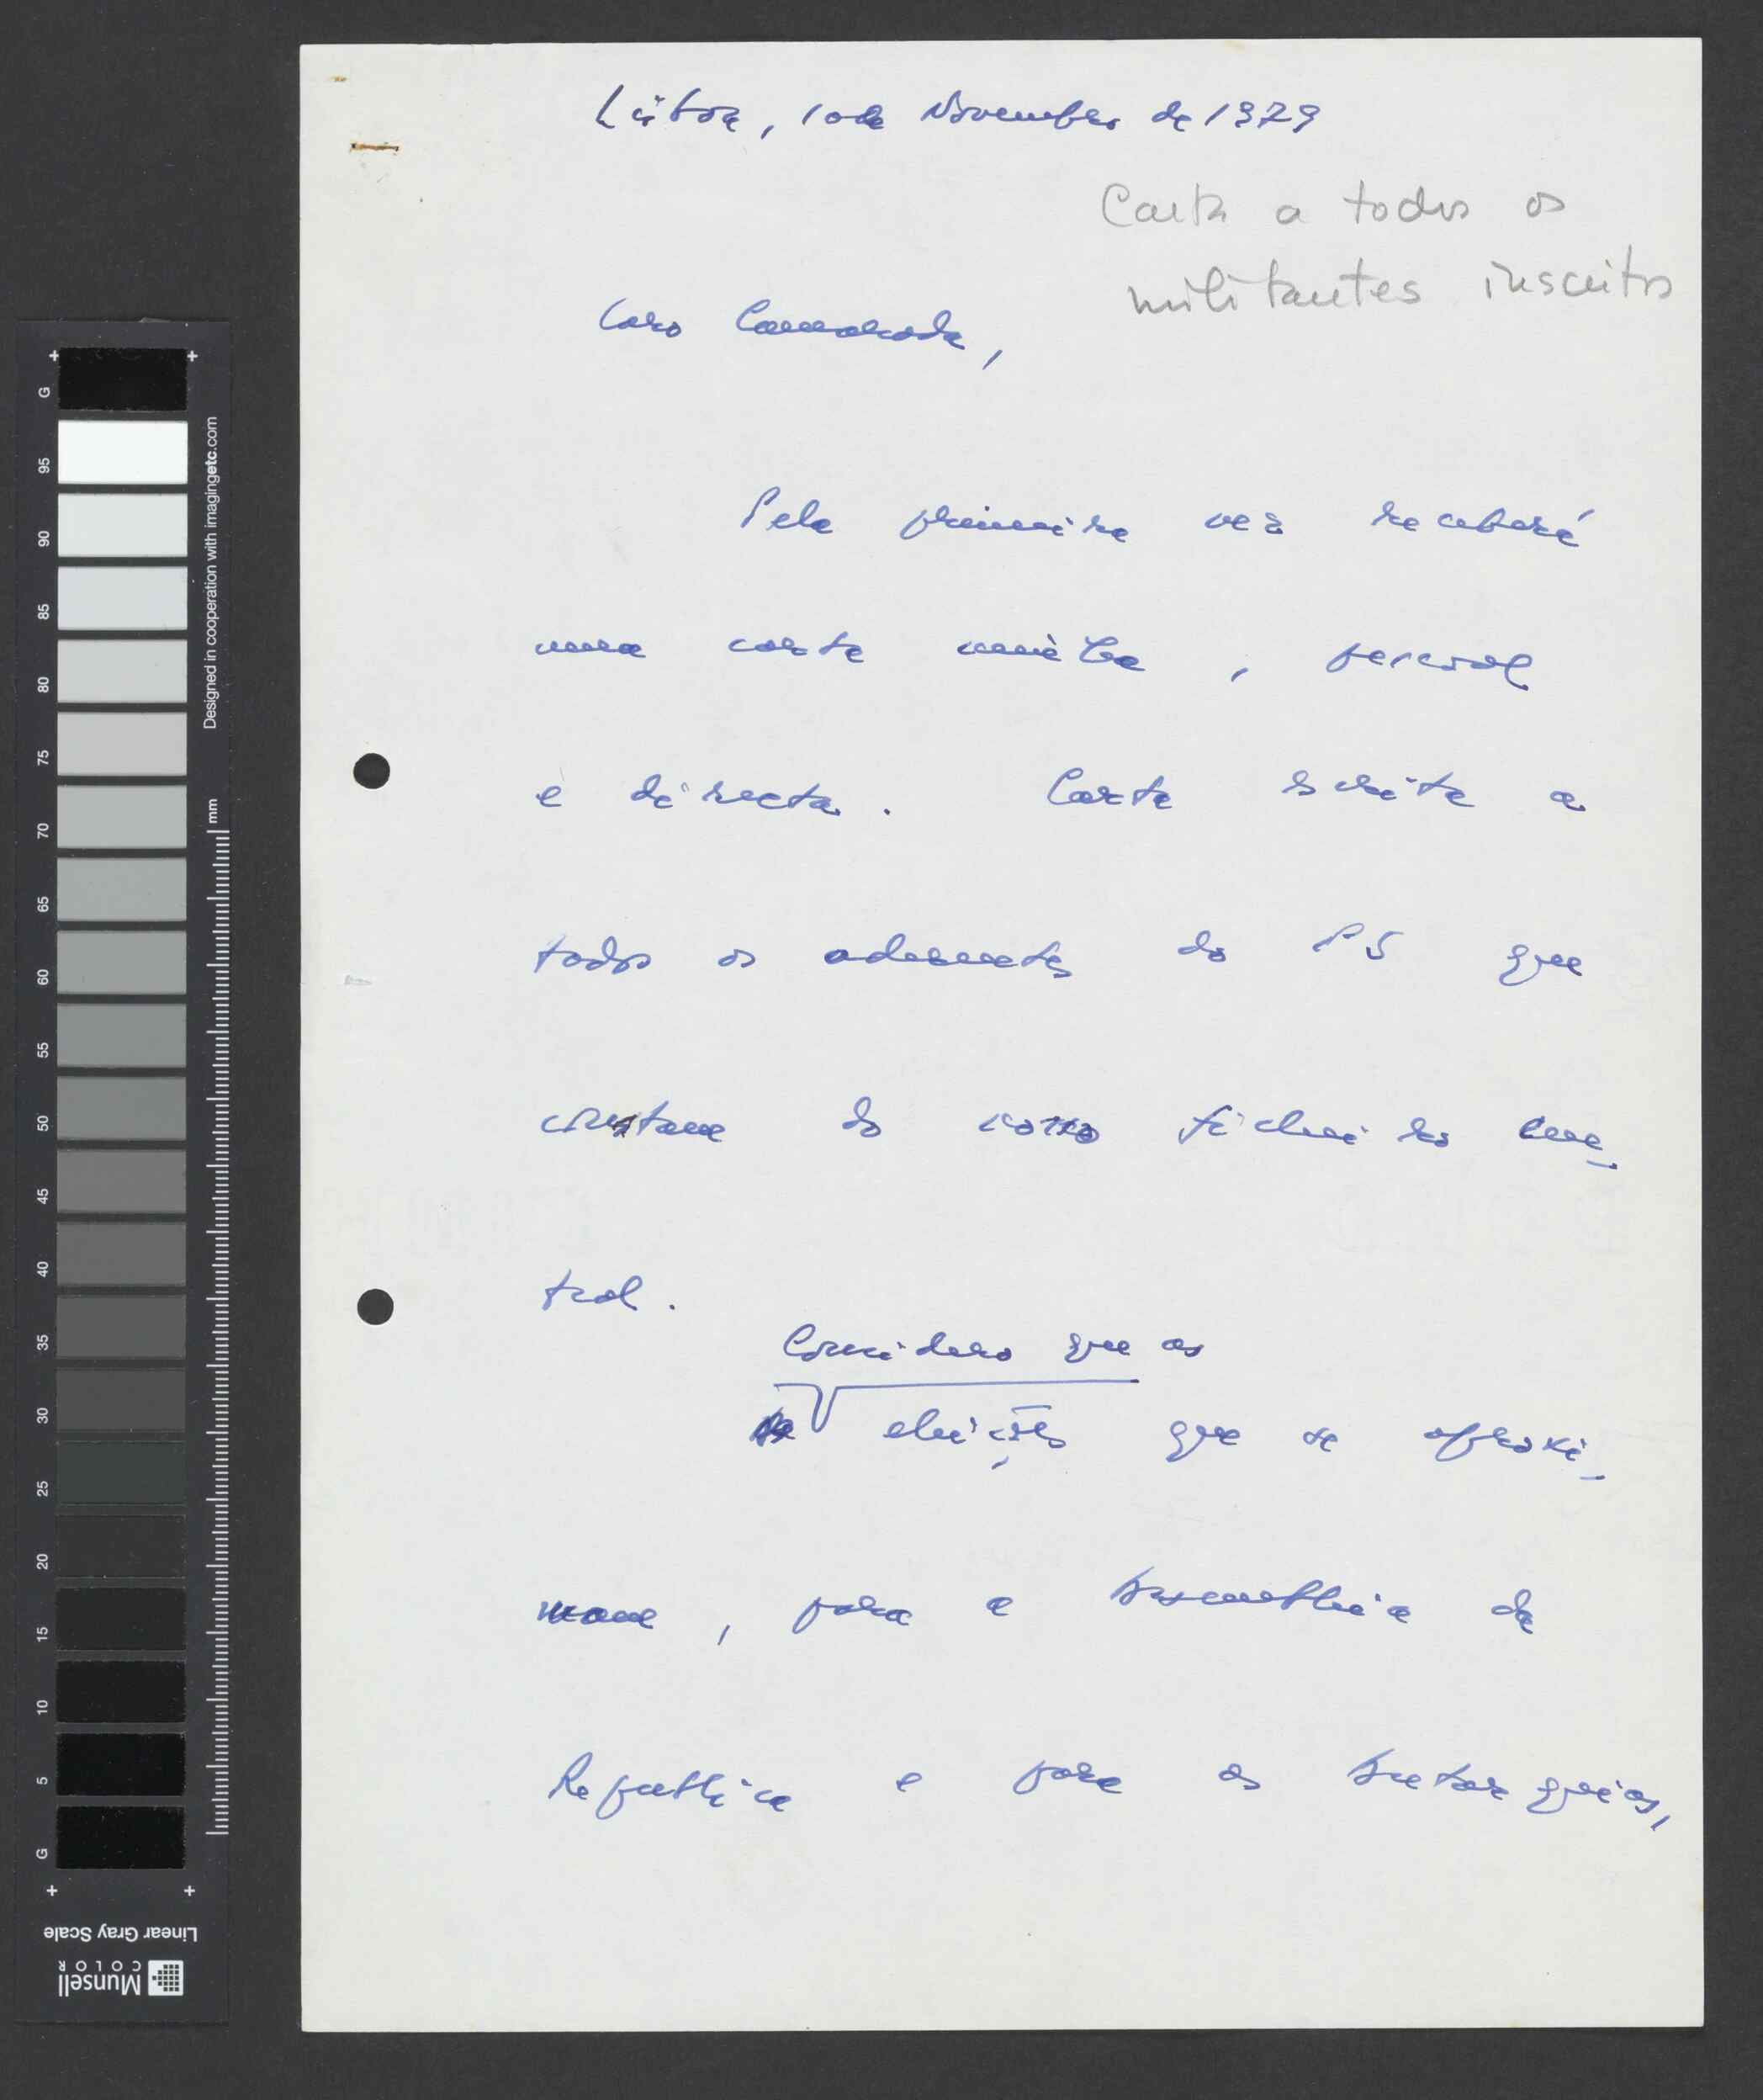 Lisboa, 10 de Novembro de 1979
Carta a todos os
militantes inscritos
Caro Camarada,
Pela primeira vez receberá
uma carta minha, pessoal
e directa. Carta escrita a
todos os aderentes do PS que
constam do nosso ficheiro cen-
tral.
Considero que as
eleições que se aproxi-
mam, para a Assembleia da
Republica e para as Autarquias,
G
95
90
85
80
75
70
65
60
55
50
45
40
35
30
25
20
15
10
5
G
mm
Designed in cooperation with imagingetc.com
Linear Gray Scale
Munsell
COLOR